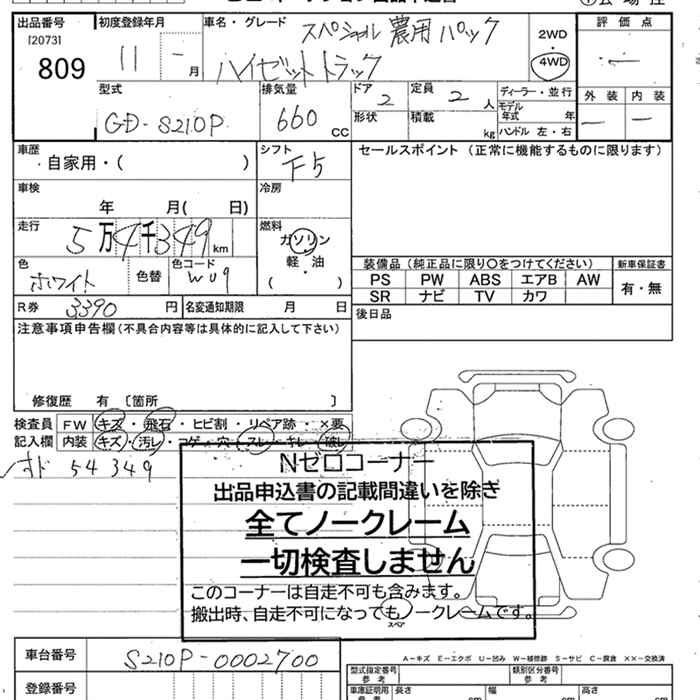 出品番号 初度登録年月 車名・グレード スペシャル 農用パック 2WD 評価点
[2073] 809 11 - 月 ハイゼットトラック 4WD
型式 排気量 ドア 定員 ディーラー・並行 外装 内装
GD-S210P 660 CC 2 2 人 モデル年式 年
形状 積載 kg ハンドル 左・右
車歴 シフト セールスポイント (正常に機能するものに限ります)
・自家用・( ) F5
車検 冷房
年 月( 日)
走行 燃料
5万4千349km ガソリン
軽・油
色 色替 色コード ( ) 装備品 (純正品に限り○をつけてください) 新車保証書
ホワイト W09 PS PW ABS エアB AW 有・無
SR ナビ TV カワ
R券 3390 円 名変通知期限 月 日 後日品
注意事項申告欄(不具合内容等は具体的に記入して下さい)
修復歴 有 〔箇所 〕
検査員 FW キズ・飛石・ヒビ割・リペア跡・×要
記入欄 内装 キズ・汚レ・コゲ・穴・スレ・キレ・破レ
54349
Nゼロコーナー
出品申込書の記載間違いを除き
全てノークレーム
一切検査しません
このコーナーは自走不可も含みます。
搬出時、自走不可になってもノークレームです。
スペア
A-キズ E-エクボ U-凹み W-補修跡 S-サビ C-腐食 ××-交換済
車台番号 S210P-0002700 型式指定番号 参考 類別区分番号 参考
登録番号 車庫証明用 長さ cm 幅 cm 高さ cm